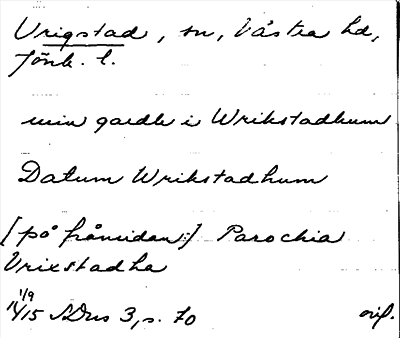 Vrigstad, sn, Västra hd,
Jönk. l.
min gardh i Wrikstadhum
Datum Wrikstadhum
[på frånsidan:] Parochia
Vrixstadha
1/9
1415 SDns 3, s. 70 orig.